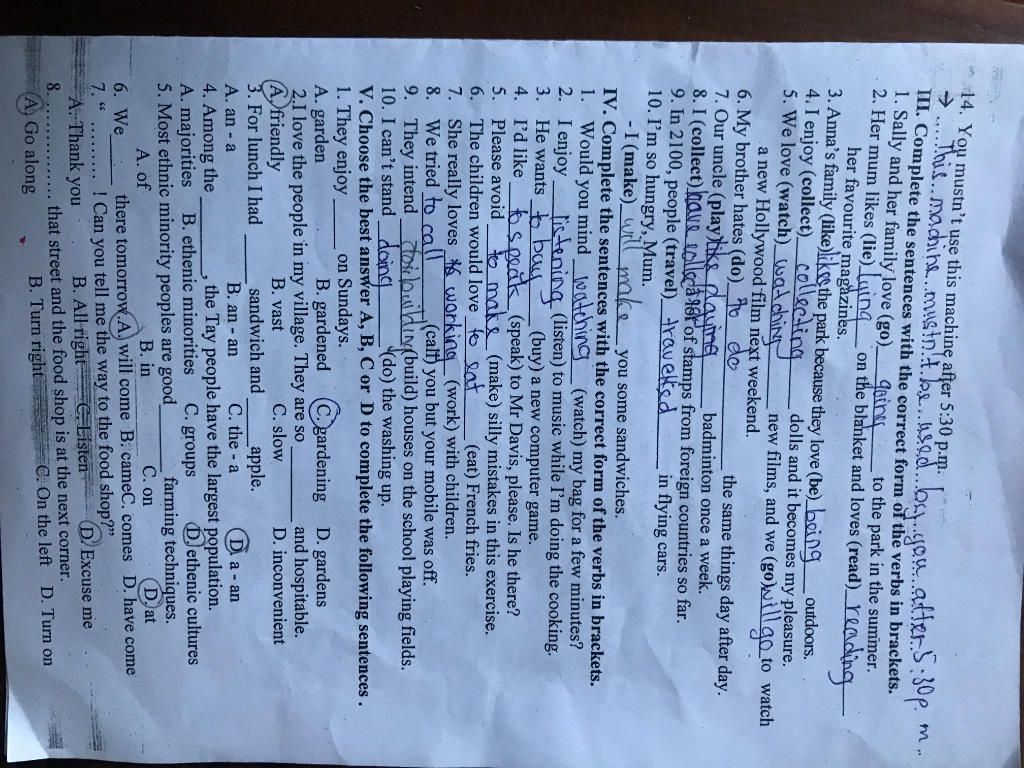 14. You mustn't use this machine after 5:30 p.m.
→ This machine mustn't be used by you after 5:30 p m
III. Complete the sentences with the correct form of the verbs in brackets.
1. Sally and her family love (go) going to the park in the summer.
2. Her mum likes (lie) lying on the blanket and loves (read) reading
her favourite magazines.
3. Anna's family (like) likes the park because they love (be) being outdoors.
4. I enjoy (collect) collecting dolls and it becomes my pleasure.
5. We love (watch) watching new films, and we (go) will go to watch
a new Hollywood film next weekend.
6. My brother hates (do) to do the same things day after day.
7. Our uncle (play) badminton once a week.
8. I (collect) have of stamps from foreign countries so far.
9. In 2100, people (travel) traveked in flying cars.
10. I'm so hungry, Mum.
- I (make) will make you some sandwiches.
IV. Complete the sentences with the correct form of the verbs in brackets.
1. Would you mind watching (watch) my bag for a few minutes?
2. I enjoy listening (listen) to music while I'm doing the cooking.
3. He wants to buy (buy) a new computer game.
4. I'd like to speak (speak) to Mr Davis, please. Is he there?
5. Please avoid to make (make) silly mistakes in this exercise.
6. The children would love to eat (eat) French fries.
7. She really loves working (work) with children.
8. We tried to call (call) you but your mobile was off.
9. They intend (build) houses on the school playing fields.
10. I can't stand doing (do) the washing up.
V. Choose the best answer A, B, C or D to complete the following sentences .
1. They enjoy ______ on Sundays.
A. garden B. gardened C. gardening D. gardens
2.I love the people in my village. They are so ______ and hospitable.
A. friendly B. vast C. slow D. inconvenient
3. For lunch I had ______ sandwich and ______ apple.
A. an - a B. an - an C. the - a D. a - an
4. Among the ______, the Tay people have the largest population.
A. majorities B. ethenic minorities C. groups D. ethenic cultures
5. Most ethnic minority peoples are good______ farming techniques.
A. of B. in C. on D. at
6. We______ there tomorrow. A. will come B. came C. comes D. have come
7. “ ......... ! Can you tell me the way to the food shop?”
A. Thank you B. All right C. Listen D. Excuse me
8. ............ that street and the food shop is at the next corner.
A. Go along B. Turn right C. On the left D. Turn on